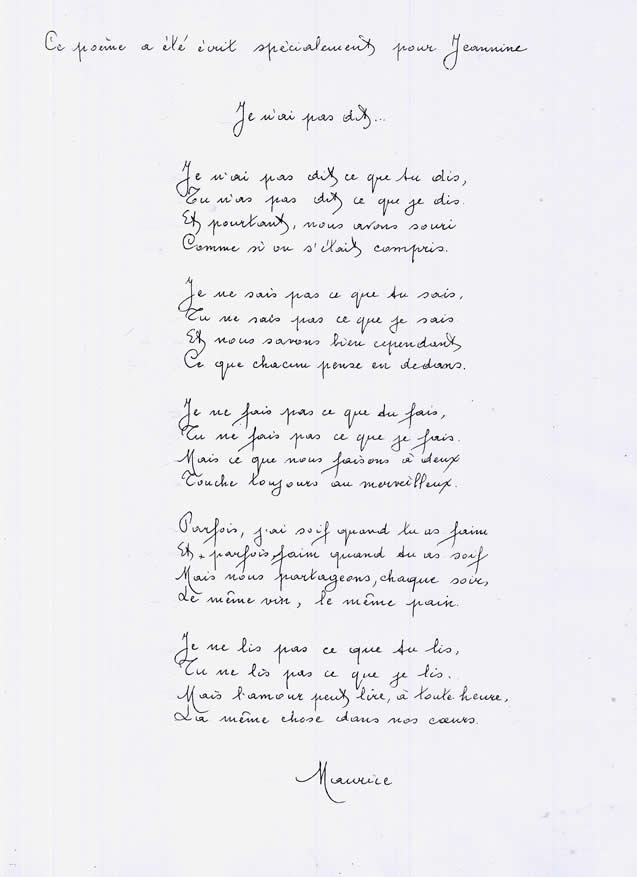 Ce poème a été écrit spécialement pour Jeannine
Je n'ai pas dit...
Je n'ai pas dit ce que tu dis,
Tu n'as pas dit ce que je dis.
Et pourtant, nous avons souri
Comme si on s'était compris.
Je ne sais pas ce que tu sais,
Tu ne sais pas ce que je sais
Et nous savons bien cependant
Ce que chacun pense en dedans.
Je ne fais pas ce que tu fais,
Tu ne fais pas ce que je fais.
Mais ce que nous faisons à deux
Touche toujours au merveilleux.
Parfois, j'ai soif quand tu as faim
Et, parfois, faim quand tu as soif
Mais nous partageons, chaque soir,
Le même vin, le même pain.
Je ne lis pas ce que tu lis,
Tu ne lis pas ce que je lis.
Mais l'amour peut lire, à toute heure,
La même chose dans nos cœurs.
Maurice